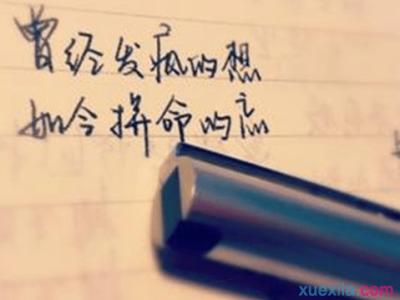 曾经发疯的想
如今拼命的忘
xuexila.com